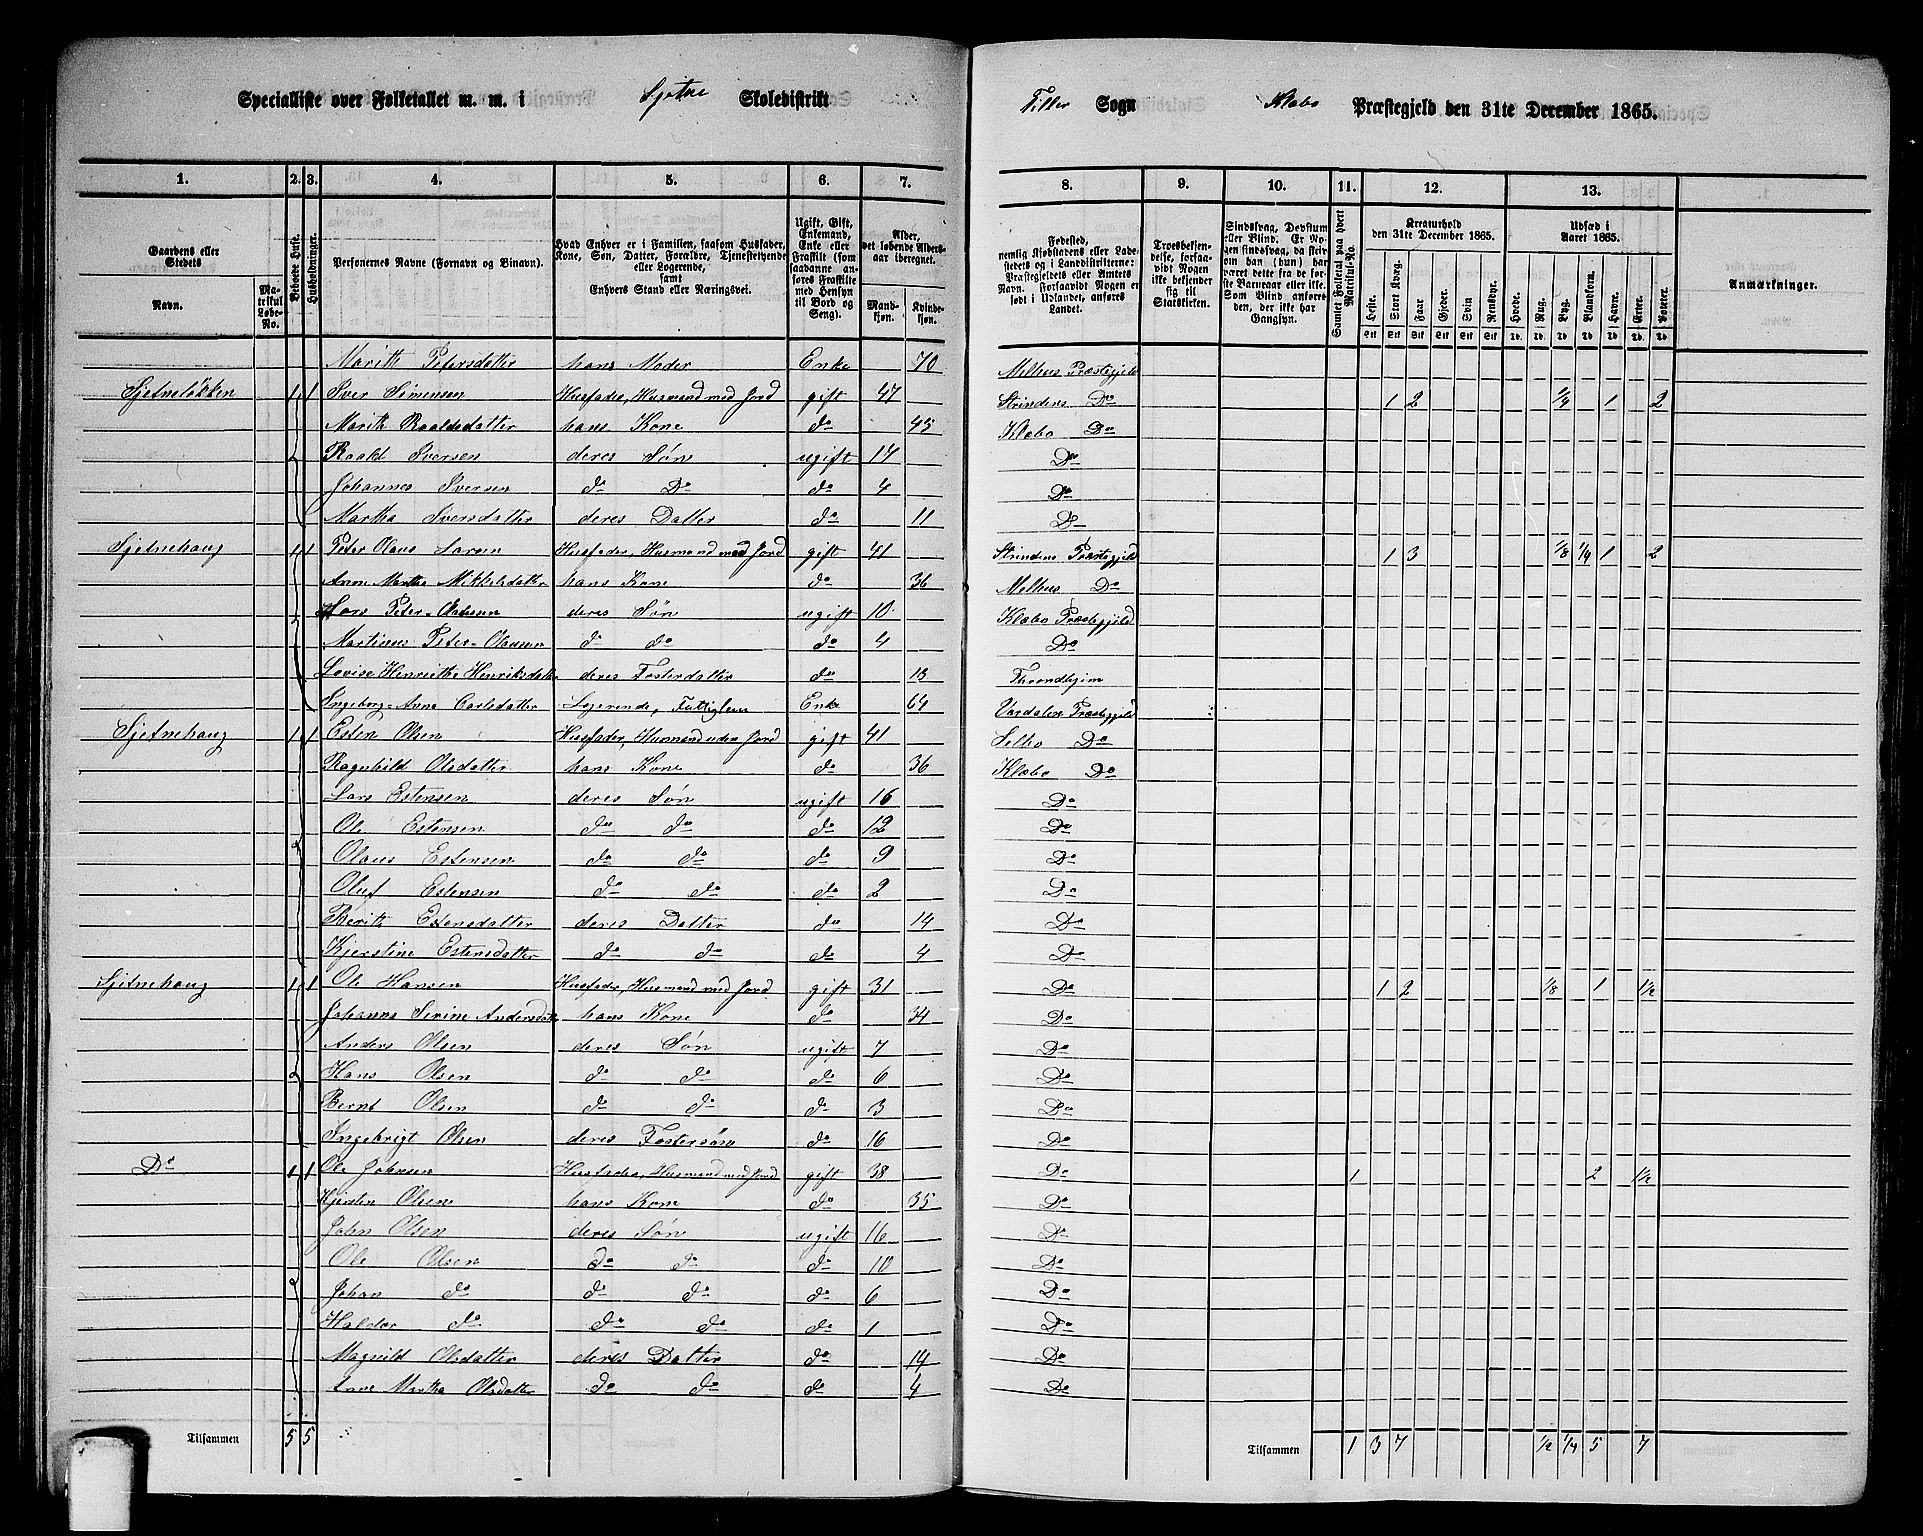 Specialliste over Folketallet m. m. i Sjetne Skoledistrikt
Tiller Sogn Klæbo Præstegjeld den 31te December 1865.
1. 2. 3. 4. 5. 6. 7. 8. 9. 10. 11. 12. 13.
Gaardens eller Stedets
Navn.
Matrikul Løbe-No.
Beboede Huse.
Husholdninger.
Personernes Navne (Fornavn og Binavn).
Hvad Enhver er i Familien, saasom Husfader, Kone, Søn, Datter, Forældre, Tjenestetyende eller Logerende, samt Enhvers Stand eller Næringsvei.
Ugift, Gift, Enkemand, Enke eller Fraskilt (som saadanne anføres Fraskilte med Hensyn til Bord og Seng).
Alder, det løbende Aldersaar iberegnet.
Mandkjøn.
Kvindekjøn.
Fødested, nemlig Kjøbstadens eller Ladestedets og i Landdistrikterne: Præstegjeldets eller Amtets Navn. Forsaavidt Nogen er født i Udlandet, anføres Landet.
Troesbekjendelse, forsaavidt Nogen ikke bekjender sig til Statskirken.
Sindssvag, Døvstum eller Blind. Er Nogen sindssvag, da skrives om han (hun) har været dette fra de første Barneaar eller ikke. Som Blind anføres den, der ikke har Gangsyn.
Samlet Folketal paa hvert Matrikul-No.
Kreaturhold den 31te December 1865.
Heste. Stort Kvæg. Faar. Gjeder. Svin. Rensdyr.
Udsæd i Aaret 1865.
Hvede. Rug. Byg. Blandkorn. Havre. Erter. Poteter.
Anmærkninger.
Marith Petersdatter hans Moder Enke 70 Melhus Præstegjeld
Sjetneløkken 1 1 Iver Simensen Husfader, Husmand med Jord gift 47 Strindens Do 1 2 1/4 1 2
Marith Roaldsdatter hans Kone do 45 Klæbo Do
Roald Iversen deres Søn ugift 14 Do
Johannes Iversen do Do do 4 Do
Martha Iversdatter deres Datter do 11 Do
Sjetnehaug 1 1 Peter Olaus Larsen Husfader, Husmand med Jord gift 41 Strindens Præstegjeld 1 3 1/8 1/4 1 2
Anne Martha Mikkelsdatter hans Kone do 36 Melhus Do
Lars Peter-Olausen deres Søn ugift 10 Klæbo Præstegjeld
Martinus Peter-Olausen do do do 4 Do
Lovise Henriette Henriksdatter deres Fosterdatter do 13 Throndhjem
Ingeborg-Anna Carlsdatter Logerende, Fattiglem Enke 64 Værdalen Præstegjeld
Sjetnehaug 1 1 Esten Olsen Husfader, Husmand uden Jord gift 41 Selbo Do
Ragnhild Olsdatter hans Kone do 36 Klæbo Do
Lars Estensen deres Søn ugift 16 Do
Ole Estensen do do do 12 Do
Olaus Estensen do do do 9 Do
Oluf Estensen do do do 2 Do
Berith Estensdatter deres Datter do 14 Do
Kjerstine Estensdatter do do do 4 Do
Sjetnehaug 1 1 Ole Hansen Husfader, Husmand med Jord gift 31 Do 1 2 1/8 1 1 1/2
Johanna Sirine Andersdatter hans Kone do 34 Do
Anders Olsen deres Søn ugift 7 Do
Hans Olsen do do do 6 Do
Bernt Olsen do do do 3 Do
Ingebrigt Olsen deres Fostersøn do 16 Do
Do 1 1 Ole Johnsen Husfader, Husmand med Jord gift 38 Do 1 2 1 1/2
Kjersten Olsen hans Kone do 35 Do
John Olsen deres Søn ugift 16 Do
Ole Olsen do do do 10 Do
Johan do do do do 6 Do
Haldor do do do do 1 Do
Magnild Olsdatter deres Datter do 14 Do
Anne Martha Olsdatter do do do 4 Do
Tilsammen 5 5
Tilsammen 1 3 7 1/2 1/4 5 7